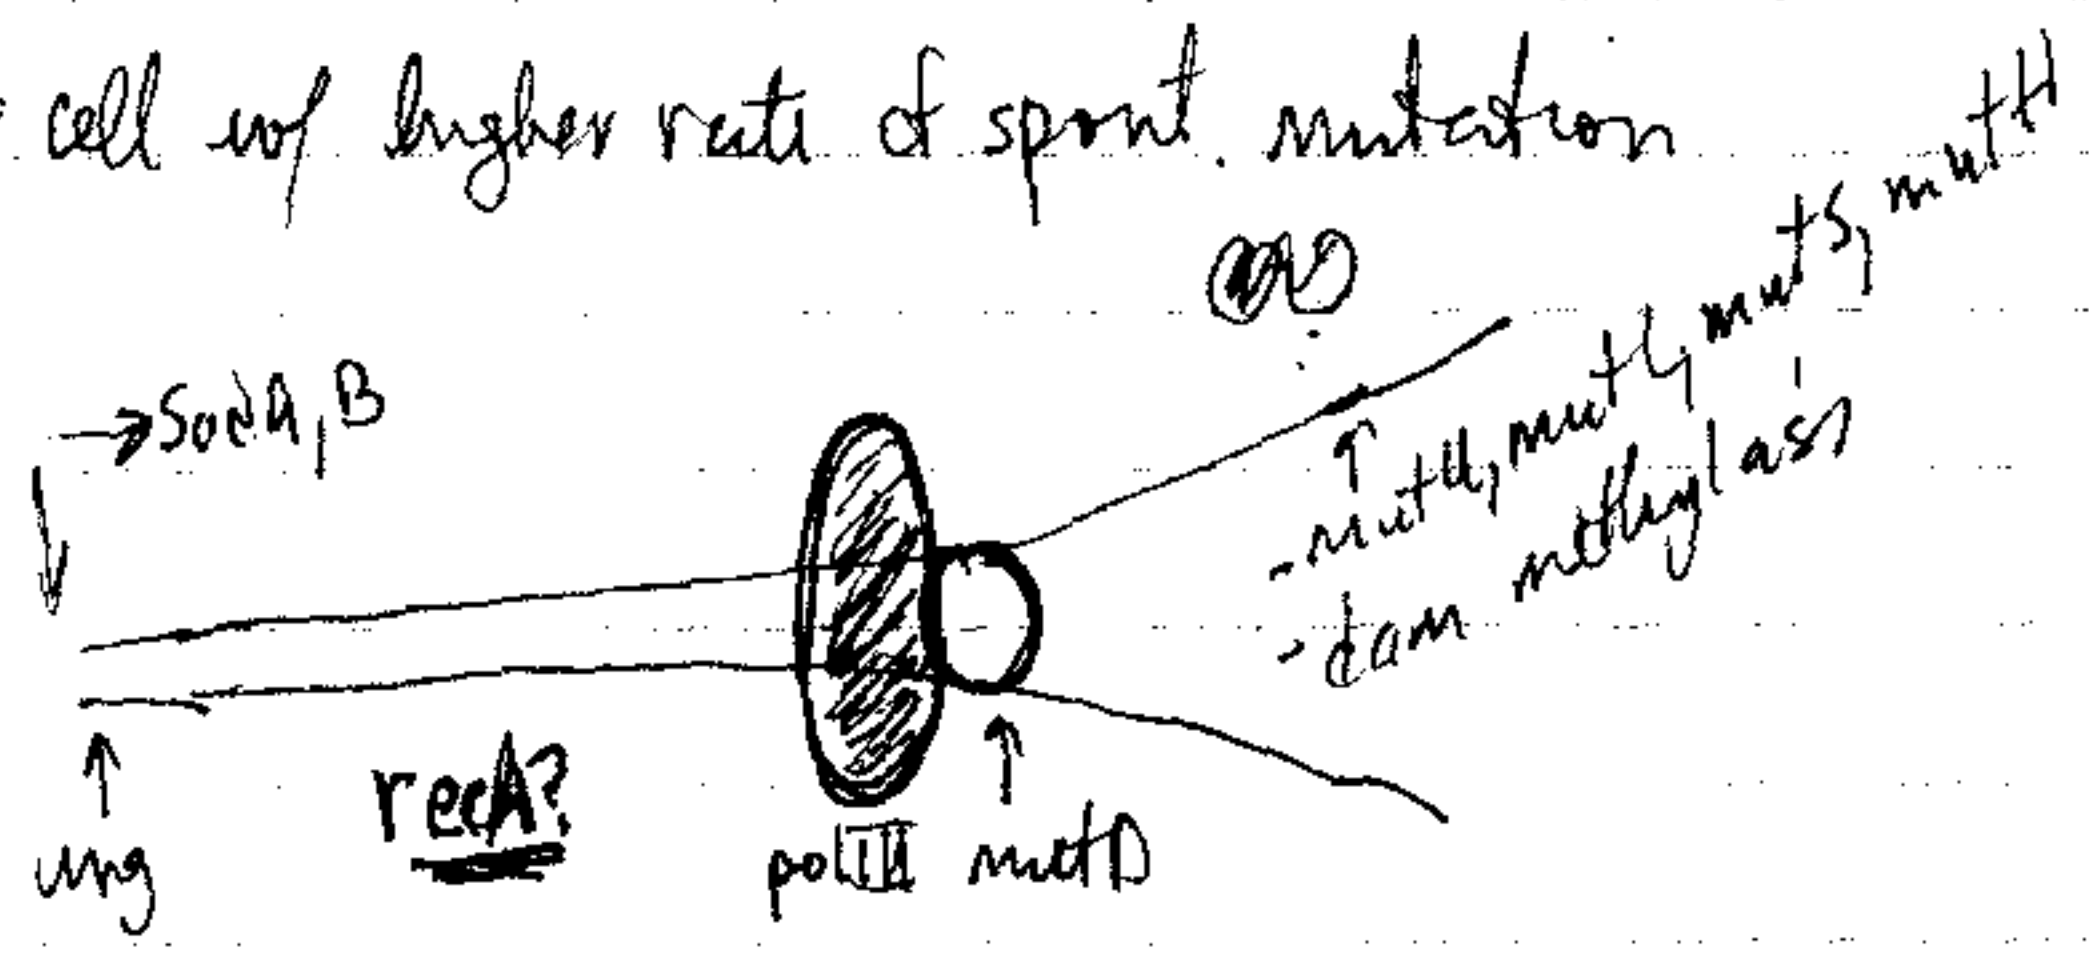 cell w/ higher rate of spont. mutation
→ SodA, B
- mutU, mutL, mutS, mutH
- dam methylase
recA?
ung
polIII
mutD